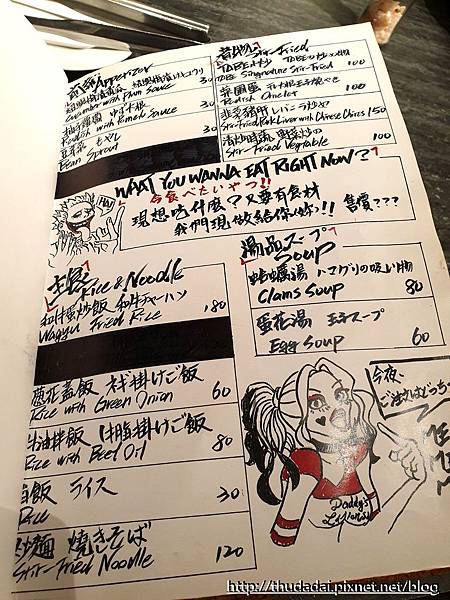 Appetizer
30
Cucumber with Plum Sauce
30
Radish with Pomelo Sauce
もやし
30
Bean Sprout
Stir-Fried
TABEルせ炒
TABE Signature Stir-Fried
菜圃蛋
100
Radish Omelet
韭菜豬肝 レバニラ炒め
Stir-Fried Pork Liver with Chinese Chives 150
清炒時蔬 野菜炒め
Stir-Fried Vegetable 100
HAI
WHAT YOU WANNA EAT RIGHT NOW?
今食べたいやつ!!
現想吃什麼?只要有食材
我們現做給你吃!! 售價???
主食 Rice & Noodle
和牛蛋炒飯 和牛チャーハン
Wagyu Fried Rice 180
蔥花蓋飯 ネギ掛けご飯
Rice with Green Onion 60
牛油拌飯 牛脂掛けご飯
Rice with Beef Oil 80
白飯 ライス
Rice 30
炒麵 焼きそば
Stir-Fried Noodle 120
湯品スープ
Soup
蛤蠣湯 ハマグリの吸い物
Clams Soup 80
蛋花湯 玉子スープ
Egg Soup 60
今夜
ご注文はどっち
Daddy's
http://thudadai.pixnet.net/blog